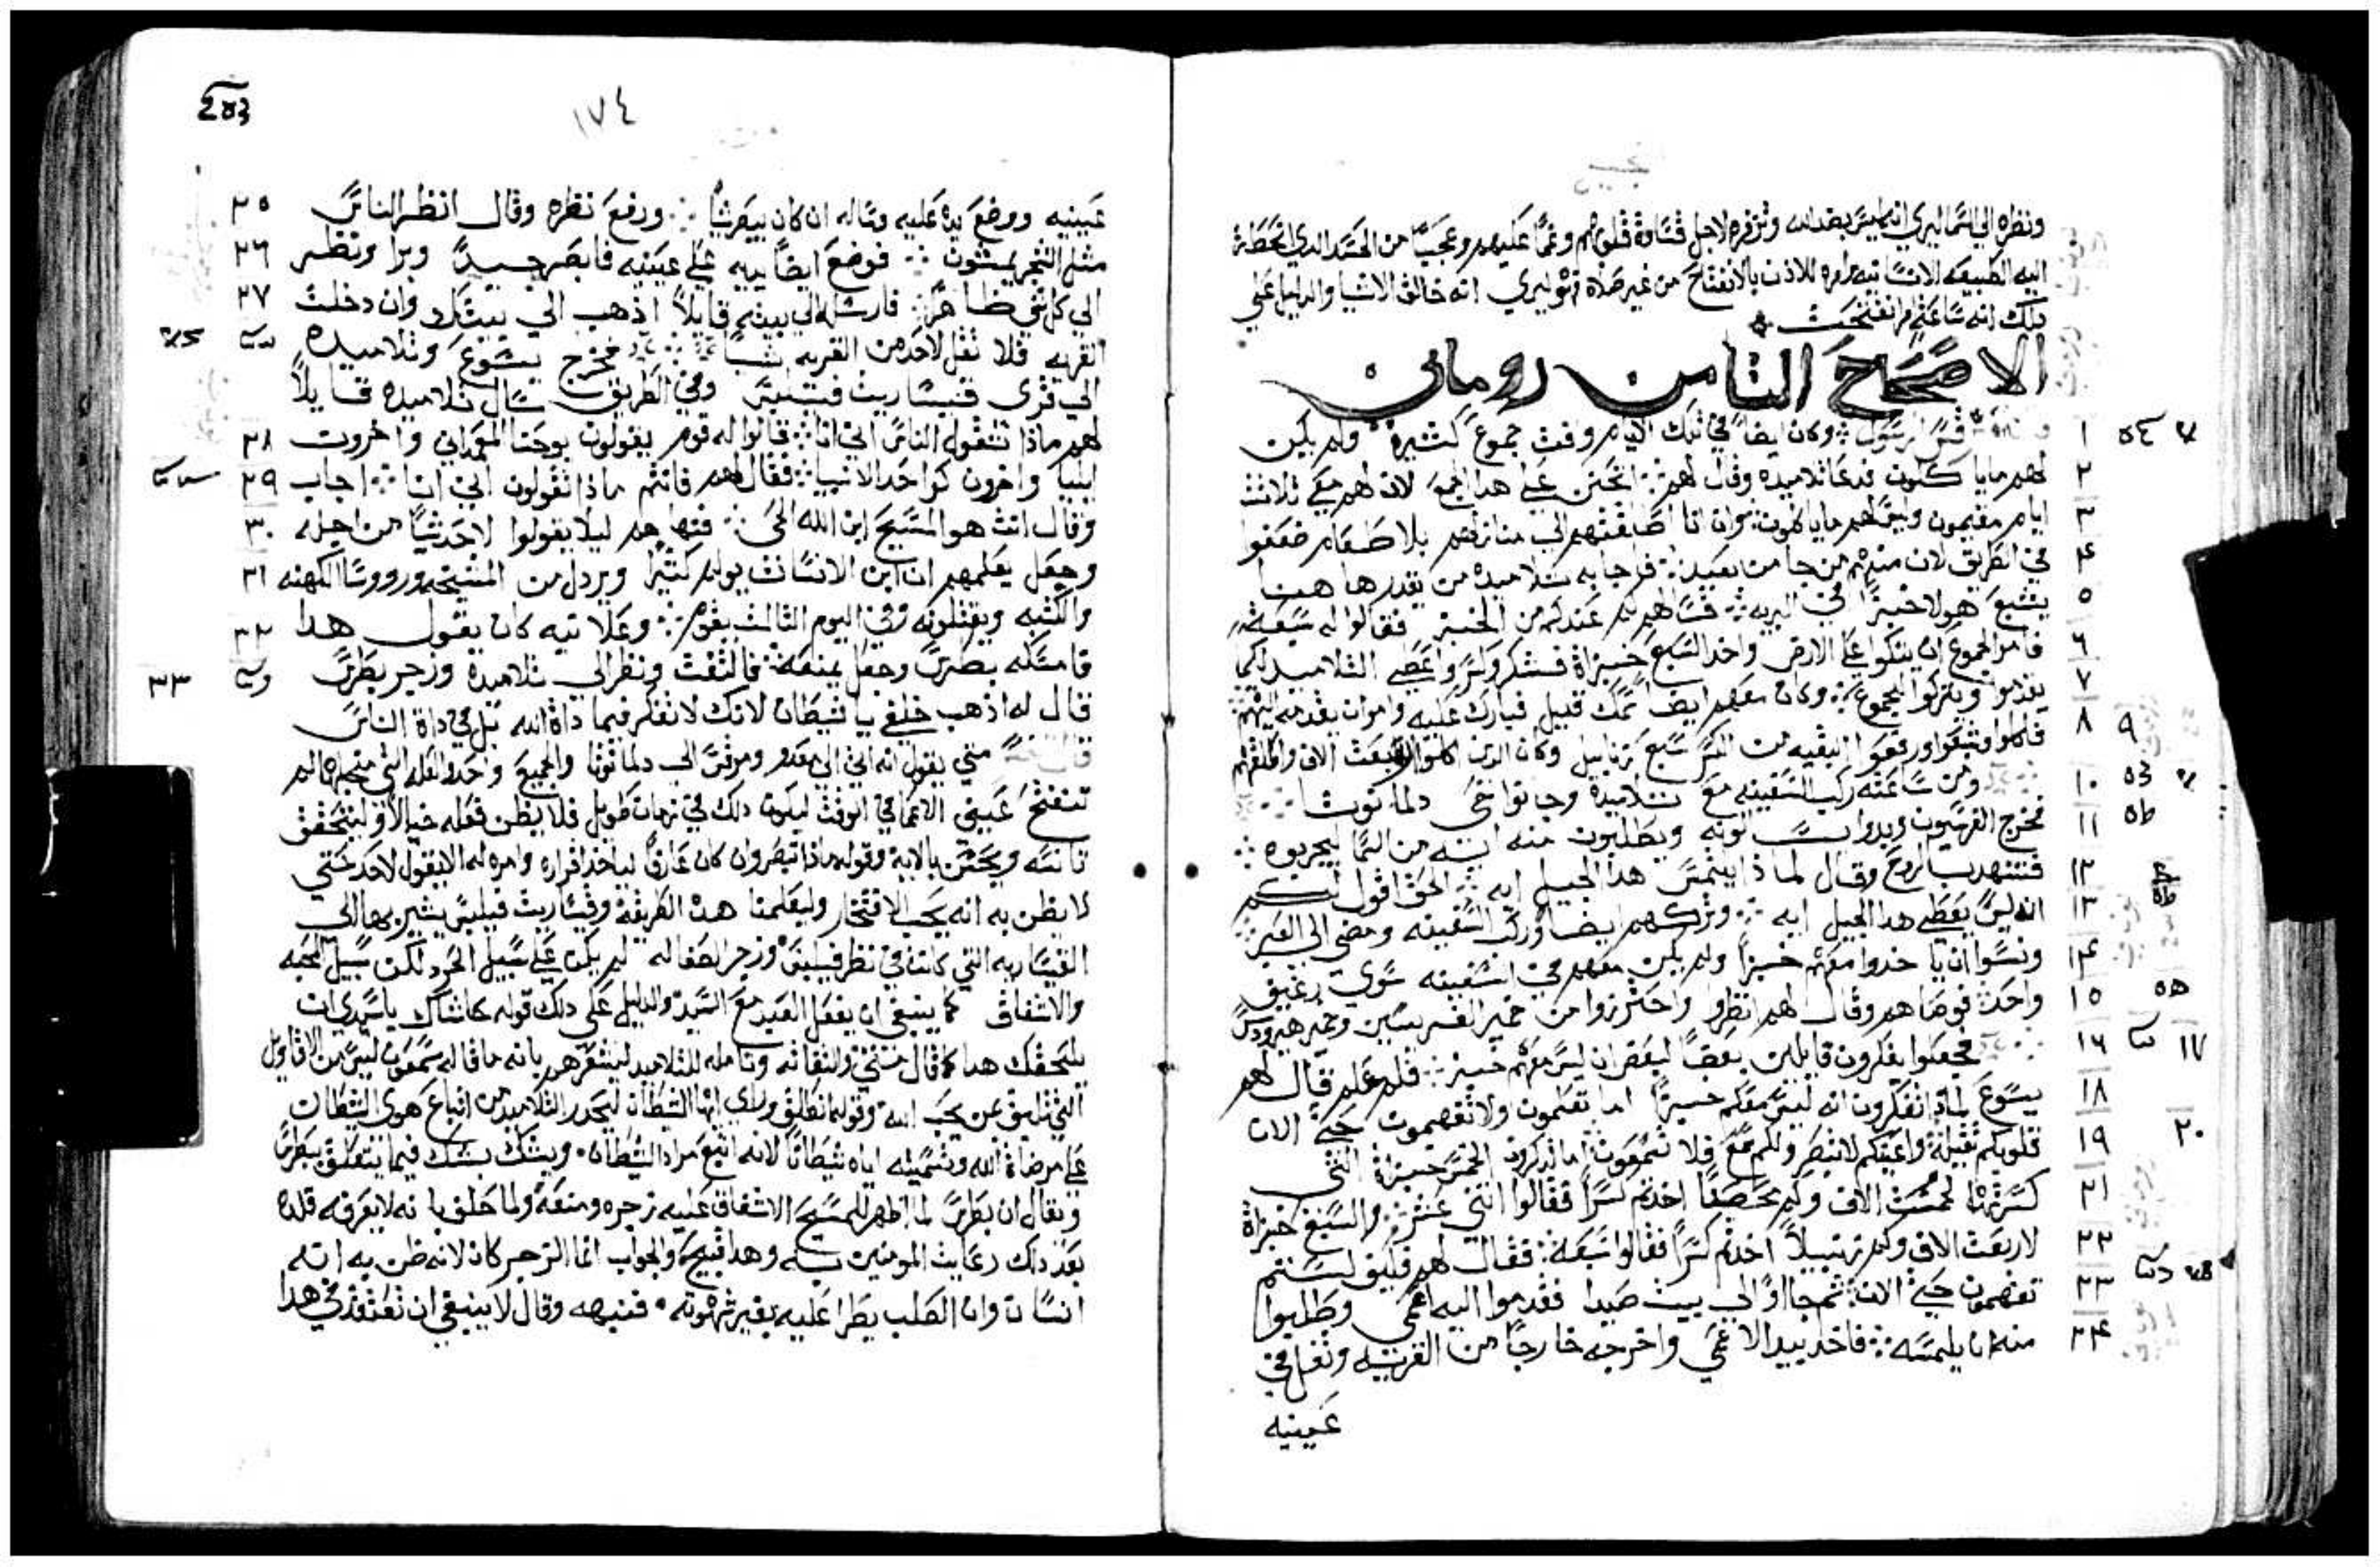 ونظره الي السما ليري انه ليس بضد الله وتزفره لاجل قساوة قلوبهم وغما عليهم وعجبا من الحسد الذي
اليه الطبيعه الانسانيه وامره للاذن بالانفتاح من غير صلاة هو ليري انه خالق الاشيا والدليل علي
دلك انه ساعته انفتحت
الاصحاح الثامن روماني
١ وكان ايضا في تلك الايام وافت جموع كتيره ولم يكن
٢ لهم ما ياكلون فدعا تلاميده وقال لهم اتحنن علي هدا الجمع لان لهم معي تلاتت
٣ ايام مقيمون وليس لهم ما ياكلون وان انا اطلقتهم الي منازلهم بلا طعام ضعفوا
۴ في الطريق لان منهم من جا من بعيد فاجابه تلاميده من يقدر هاهنا
٥ يشبع هولا خبزا في البريه فسالهم كم عندكم من الخبز فقالوا له سبعه
٦ فامر الجموع ان يتكوا علي الارض واخد السبع خبزاة فشكر وكسر واعطي التلاميد لكما
٧ يقدموا ويتركوا للجموع وكان معهم ايضا سمك قليل فبارك عليه وامر ان يقدم
٨ فاكلوا وشبعوا ورفعوا البقيه من الكسر سبع زنابيل وكان الدين اكلوا اربعت الاف واطلقهم
١٠ ومن ساعته ركب السفينه مع تلاميده وجا نواحي دلمانوتا
١١ فخرج الفريسيون وبدوا يسالونه ويطلبون منه ايه من السما ليجربوه
١٢ فتنهد بالروح وقال لماذا يلتمس هدا الجيل ايه الحق اقول لكم
١٣ انه ليس يعطي هدا الجيل ايه وتركهم ايضا وركب السفينه ومضي الي العبر
١۴ ونسوا ان ياخدوا معهم خبزا ولم يكن معهم في السفينه سوي رغيف
١٥ واحد فوصاهم وقال لهم انظروا واحترزوا من خمير الفريسيين وخمير هيرودس
١٦ فجعلوا يفكرون قايلين بعضا لبعض ان ليس معهم خبز فلم علم قال لهم
١٨ يسوع لماذا تفكرون انه ليس معكم خبزا اما تعلمون ولا تفهمون حتي الان
١٩ قلوبكم تقيلة واعينكم لا تبصر ولكم فلا تسمعون اما تدكرون الخمس خبزاة التي
٢١ كسرتها لخمست الاف وكم اخدتم كسرا فقالوا اتني عشر والسبع خبزاة
٢٢ لاربعت الاف وكم زنبيلا اخدتم كسرا فقالوا سبعة فقال لهم فكيف لستم
٢٣ تفهمون حتي الان تم جااوا الي بيت صيدا فقدموا اليه اعمي وطلبوا
٢۴ منه ان يلمسه فاخد بيد الاعمي واخرجه خارجا من القريه وتفل في
عينيه
١٧٤
عينيه ووضع يده عليه وساله ان كان يبصر شيا ورفع نظره وقال انظر الناس ٢٥
مثل الشجر يمشون فوضع ايضا يديه علي عينيه فابصر جيدا وبرا ونظر ٢٦
الي كل شي ظاهرا فارسله الي بيته قايلا اذهب الي بيتك وان دخلت ٢٧
القريه فلا تقل لاحد من القريه شيا فخرج يسوع وتلاميده
الي قري قيساريت فيلبس وفي الطريق سال تلاميده قايلا
لهم ماذا تقول الناس اني انا فقالوا له قوم يقولون يوحنا المعمداني واخرون ٢٨
ايليا واخرون كواحد الانبيا فقال لهم فانتم ماذا تقولون اني انا اجاب ٢٩
وقال انت هو المسيح ابن الله الحي فنهاهم ليلا يقولوا لاحد شيا من اجله ٣٠
وجعل يعلمهم ان ابن الانسان يولم كتيرا ويردل من المشيخه وروسا الكهنه ٣١
والكتبه ويقتلونه وفي اليوم التالت يقوم وعلانيه كان يقول هدا ٣٢
فامسكه بطرس وجعل يمنعه فالتفت ونظر الي تلاميده وزجر بطرس ٣٣
قال له اذهب خلفي يا شيطان لانك لا تفكر فيما داة الله بل في داة الناس
متي يقول انه اتي الي مغدو ومرقس الي دلمانوتا والجميع واحد والعله التي من اجلها لم
تنفتح عيني الاعما في الوقت ليكون دلك في زمان طويل فلا يظن فعله خيالا وليتحقق
تانيه ويحسن بالاية وقوله ماذا تبصر وان كان عارفا لياخد اقراره وامره له الا يقول لاحد حتي
لا يظن به انه يحب الافتخار وليعلمنا هده الطريقة وقيساريت فيلبس يشير بها الي
القيساريه التي كانت في نظر فيلبس وزجر الصفا له لم يكن علي سبيل الحرد لكن سبيل المحبه
والاشفاق كما ينبغي ان يفعل العبد مع السيد والدليل علي دلك قوله حاشاك يا سيدي ان
يلحقك هدا كما قال متي والتفاته وتامله للتلاميد ليشعرهم بانه ما قاله سمعون ليس من الاقاويل
التي تليق عن يحب الله وقوله انطلق وراي ايها الشيطان ليحدر التلاميد من اتباع هوي الشيطان
علي مرضاة الله وتسميته اياه شيطانا لانه اتبع مراد الشيطان ويشك بشك فيما يتعلق ببطرس
ويقال ان بطرس لما اظهر للمسيح الاشفاق عليه زجره ومنعه ولما حلف بانه لا يعرفه قلده
بعد دلك رعايت المومنين به وهدا قبيح والجواب انما الزجر كان لانه ظن به انه
انسان وان الصلب يطرا عليه بغير شهوته فنبهه وقال لا ينبغي ان تعتقد في هدا